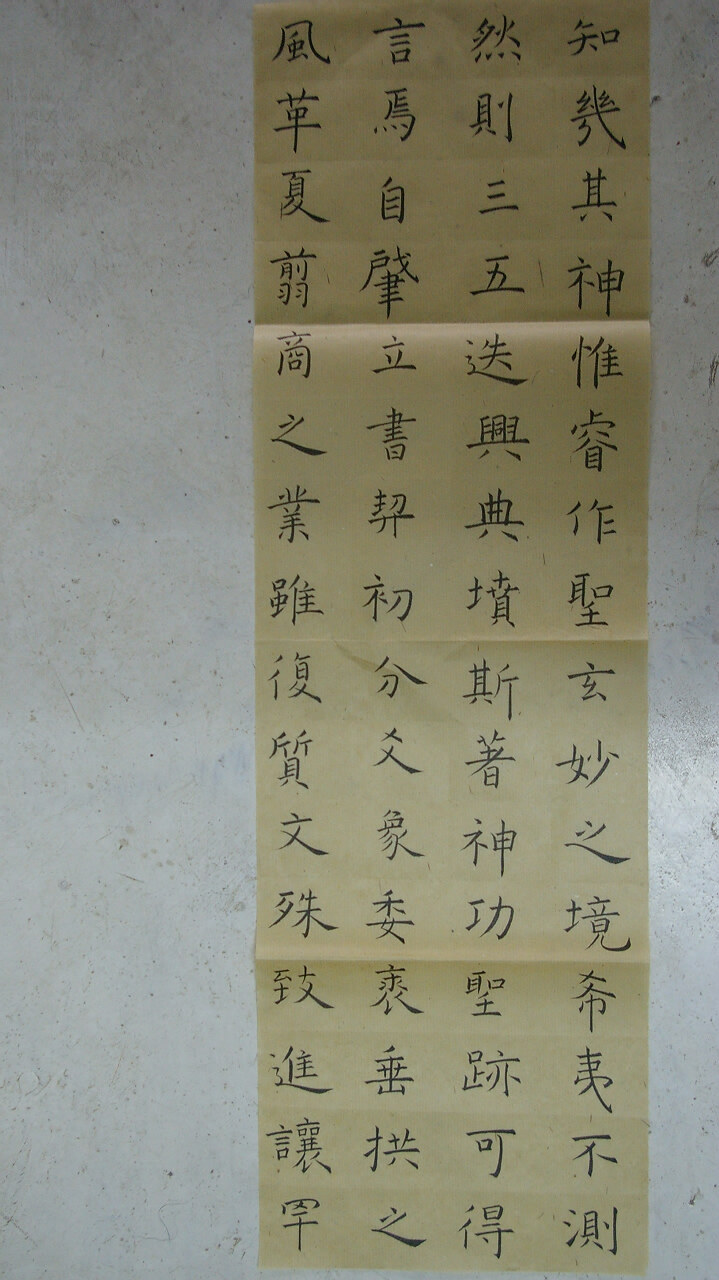 知幾其神惟睿作聖玄妙之境希夷不測
然則三五迭興典墳斯著神功聖跡可得
言焉自肈立書契初分爻象委裘垂拱之
風革夏翦商之業雖復質文殊致進讓罕